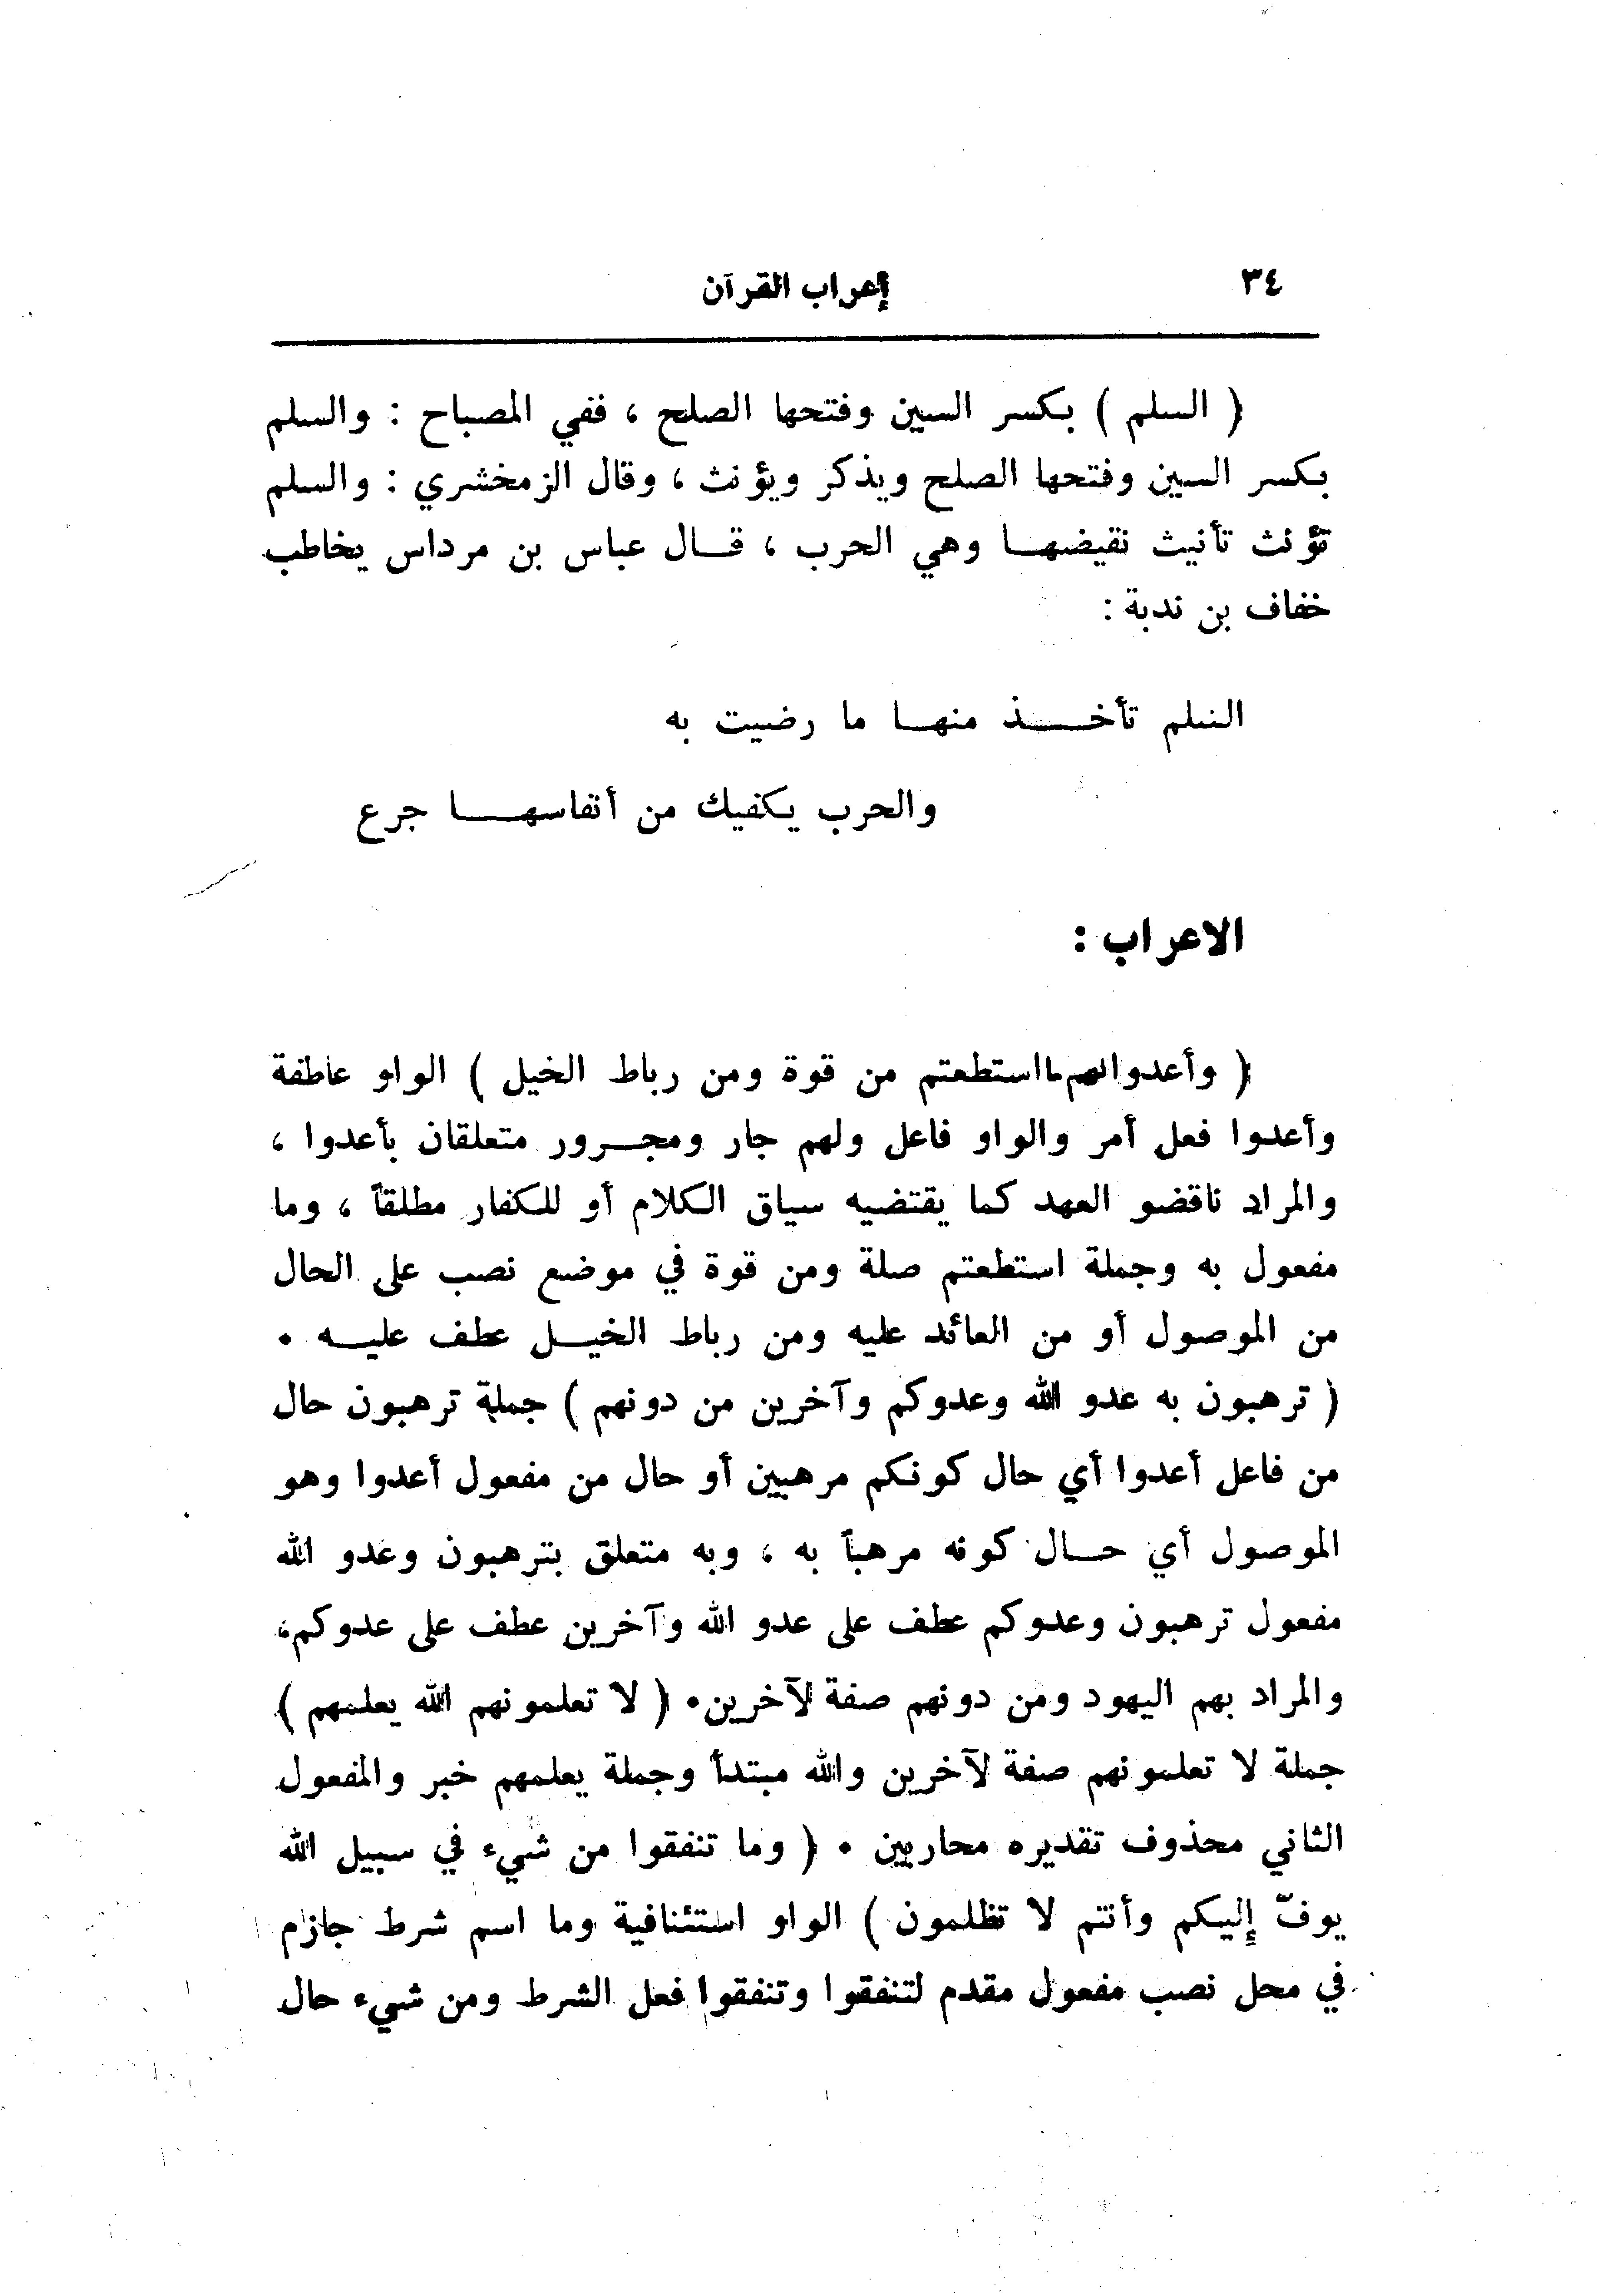 ٣٤
إعراب القرآن
( السلم ) بكسر السين وفتحها الصلح ، ففي المصباح : والسلم
بكسر السين وفتحها الصلح ويذكر ويؤنث ، وقال الزمخشري : والسلم
تؤنث تأنيث نقيضها وهي الحرب ، قال عباس بن مرداس يخاطب
خفاف بن ندبة :
السلم تأخذ منها ما رضيت به
والحرب يكفيك من أنفاسها جرع
الاعراب :
( وأعدوا لهم ما استطعتم من قوة ومن رباط الخيل ) الواو عاطفة
وأعدوا فعل أمر والواو فاعل ولهم جار ومجرور متعلقان بأعدوا ،
والمراد ناقضو العهد كما يقتضيه سياق الكلام أو للكفار مطلقاً ، وما
مفعول به وجملة استطعتم صلة ومن قوة في موضع نصب على الحال
من الموصول أو من العائد عليه ومن رباط الخيل عطف عليه .
( ترهبون به عدو الله وعدوكم وآخرين من دونهم ) جملة ترهبون حال
من فاعل أعدوا أي حال كونكم مرهبين أو حال من مفعول أعدوا وهو
الموصول أي حال كونه مرهباً به ، وبه متعلق بترهبون وعدو الله
مفعول ترهبون وعدوكم عطف على عدو الله وآخرين عطف على عدوكم،
والمراد بهم اليهود ومن دونهم صفة لآخرين. ( لا تعلمونهم الله يعلمهم )
جملة لا تعلمونهم صفة لآخرين والله مبتدأ وجملة يعلمهم خبر والمفعول
الثاني محذوف تقديره محاربين . ( وما تنفقوا من شيء في سبيل الله
يوفّ إليكم وأنتم لا تظلمون ) الواو استئنافية وما اسم شرط جازم
في محل نصب مفعول مقدم لتنفقوا وتنفقوا فعل الشرط ومن شيء حال